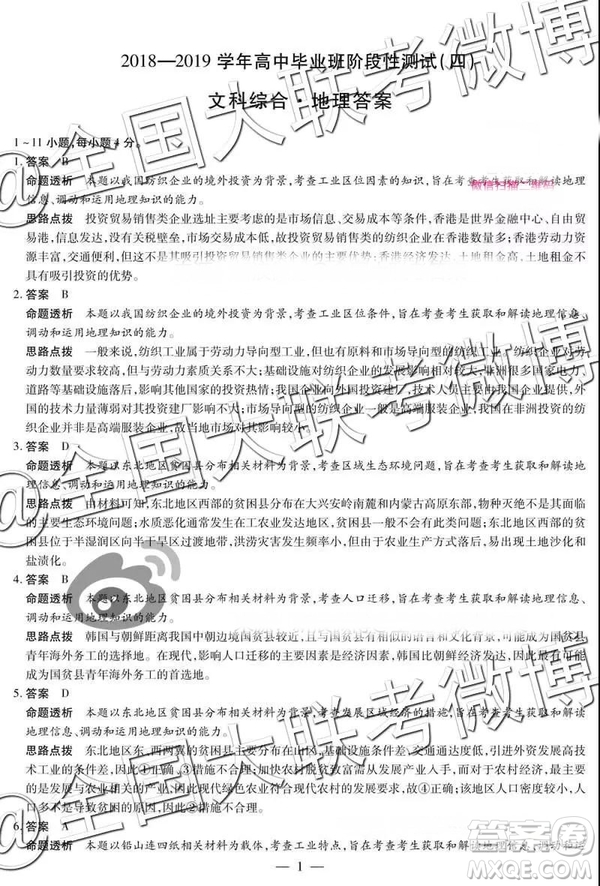 2018—2019 学年高中毕业班阶段性测试(四)
文科综合·地理答案
1~11小题,每小题4分。
1. 答案 B
命题透析 本题以我国纺织企业的境外投资为背景,考查工业区位因素的知识,旨在考查考生获取和解读地理
信息、调动和运用地理知识的能力。
思路点拨 投资贸易销售类企业选址主要考虑的是市场信息、交易成本等条件,香港是世界金融中心、自由贸
易港,信息发达,没有关税壁垒,市场交易成本低,故投资贸易销售类的纺织企业在香港分布最多;香港劳动力资
源丰富,交通便利,但这不是吸引投资贸易销售类企业的主要优势;香港经济发达、土地租金高,土地租金不具
有吸引投资的优势。
2. 答案 B
命题透析 本题以我国纺织企业境外投资为背景,考查工业区位条件,旨在考查考生获取和解读地理信息、
调动和运用地理知识的能力。
思路点拨 一般来说,纺织工业属于劳动力导向型工业,但也有原料和市场导向型的纺织工业,纺织企业对劳
动力数量要求较大,但是与劳动力素质关系不大;基础设施对纺织企业的发展影响较大,很多国家水电动力、
道路等基础设施落后,影响其他国家的投资热情;我国企业向外国投资建厂,技术人员主要由我国企业提供,外
国的技术力量薄弱对其建厂影响不大;市场对纺织企业影响较大的纺织企业一般是高端服装企业,我国在非洲投资的纺织企
业并非是高端服装企业,故当地市场对其影响较小。
3. 答案 D
命题透析 本题以东北地区贫困县分布相关材料为背景,考查区域生态环境问题,旨在考查考生获取和解读地
理信息、调动和运用地理知识的能力。
思路点拨 由材料可知,东北地区西部的贫困县分布在大兴安岭南麓和内蒙古高原东部,物种灭绝不是其面临
的主要生态环境问题;水质恶化通常发生在工农业发达地区,贫困县的工农业一般较为落后;东北地区西部的贫
困县位于半湿润区向半干旱区过渡地带,洪涝灾害发生频率低;由于农业生产方式落后,易出现土地沙化和
盐渍化。
4. 答案 B
命题透析 本题以东北地区贫困县分布相关材料为背景,考查人口迁移,旨在考查考生获取和解读地理信息、
调动和运用地理知识的能力。
思路点拨 韩国与朝鲜距离我国中朝边境国贫县较近,且与国贫县有相似的语言和文化
青年海外务工的选择地。在现代,影响人口迁移的主要因素是经济因素,韩国比朝鲜经济发达,故韩国是
国贫县青年海外务工的主要目的地。
5. 答案 D
命题透析 本题以东北地区贫困县分布相关材料为背景,考查发展区域经济的措施,旨在考查考生获取和解读
地理信息、调动和运用地理知识的能力。
思路点拨 东北地区中、西两翼的贫困县主要分布在山区,基础设施条件差,交通通达度差
条件,因此①正确,③措施不合理;加快农村脱贫致富需要从发展产业入手,而对于农村经济,最
是发展农业经济,因此现代绿色农业成为其首选,故④正确;农村地区矿产资源
困县贫困的原因,因此②措施不合理。
6. 答案 A
命题透析 本题以铅山连四纸相关材料为载体,考查工业特点,旨在考查考生获取和解读地理信息、调动和运
— 1 —
@全国大联考微博